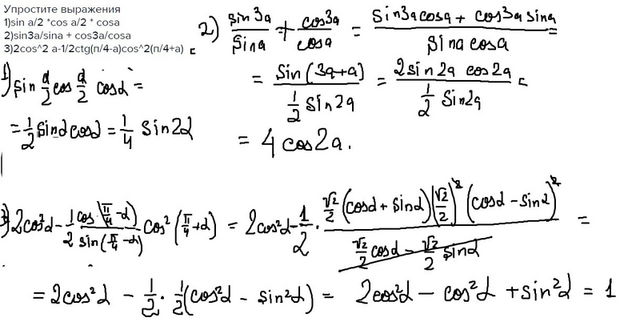 Упростите выражения
1)sin a/2 *cos a/2 * cosa
2)sin3a/sina + cos3a/cosa
3)2cos^2 a-1/2ctg(п/4-a)cos^2(п/4+a) с
2) sin3a/sina + cos3a/cosa = (sin3a cosa + cos3a sina)/(sina cosa) =
= sin(3a+a)/(1/2 sin2a) = (2sin2a cos2a)/(1/2 sin2a) =
= 4cos2a.
1) sin α/2 cos α/2 cosα =
= 1/2 sinα cosα = 1/4 sin2α
3) 2cos²α - 1/2 cos(π/4-α)/sin(π/4-α) cos²(π/4+α) = 2cos²α - 1/2 · (√2/2 (cosα + sinα)(√2/2)² (cosα - sinα)²)/(√2/2 cosα - √2/2 sinα) =
= 2cos²α - 1/2 · 1/2 (cos²α - sin²α) = 2cos²α - cos²α + sin²α = 1